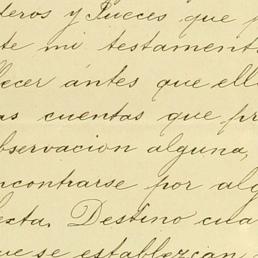 deros y Jueces que p
te mi testament
lecer ántes que ell
as cuentas que pr
bservacion alguna,
ncontrarse por alg
lecta. Destino cua
ue se establezcan